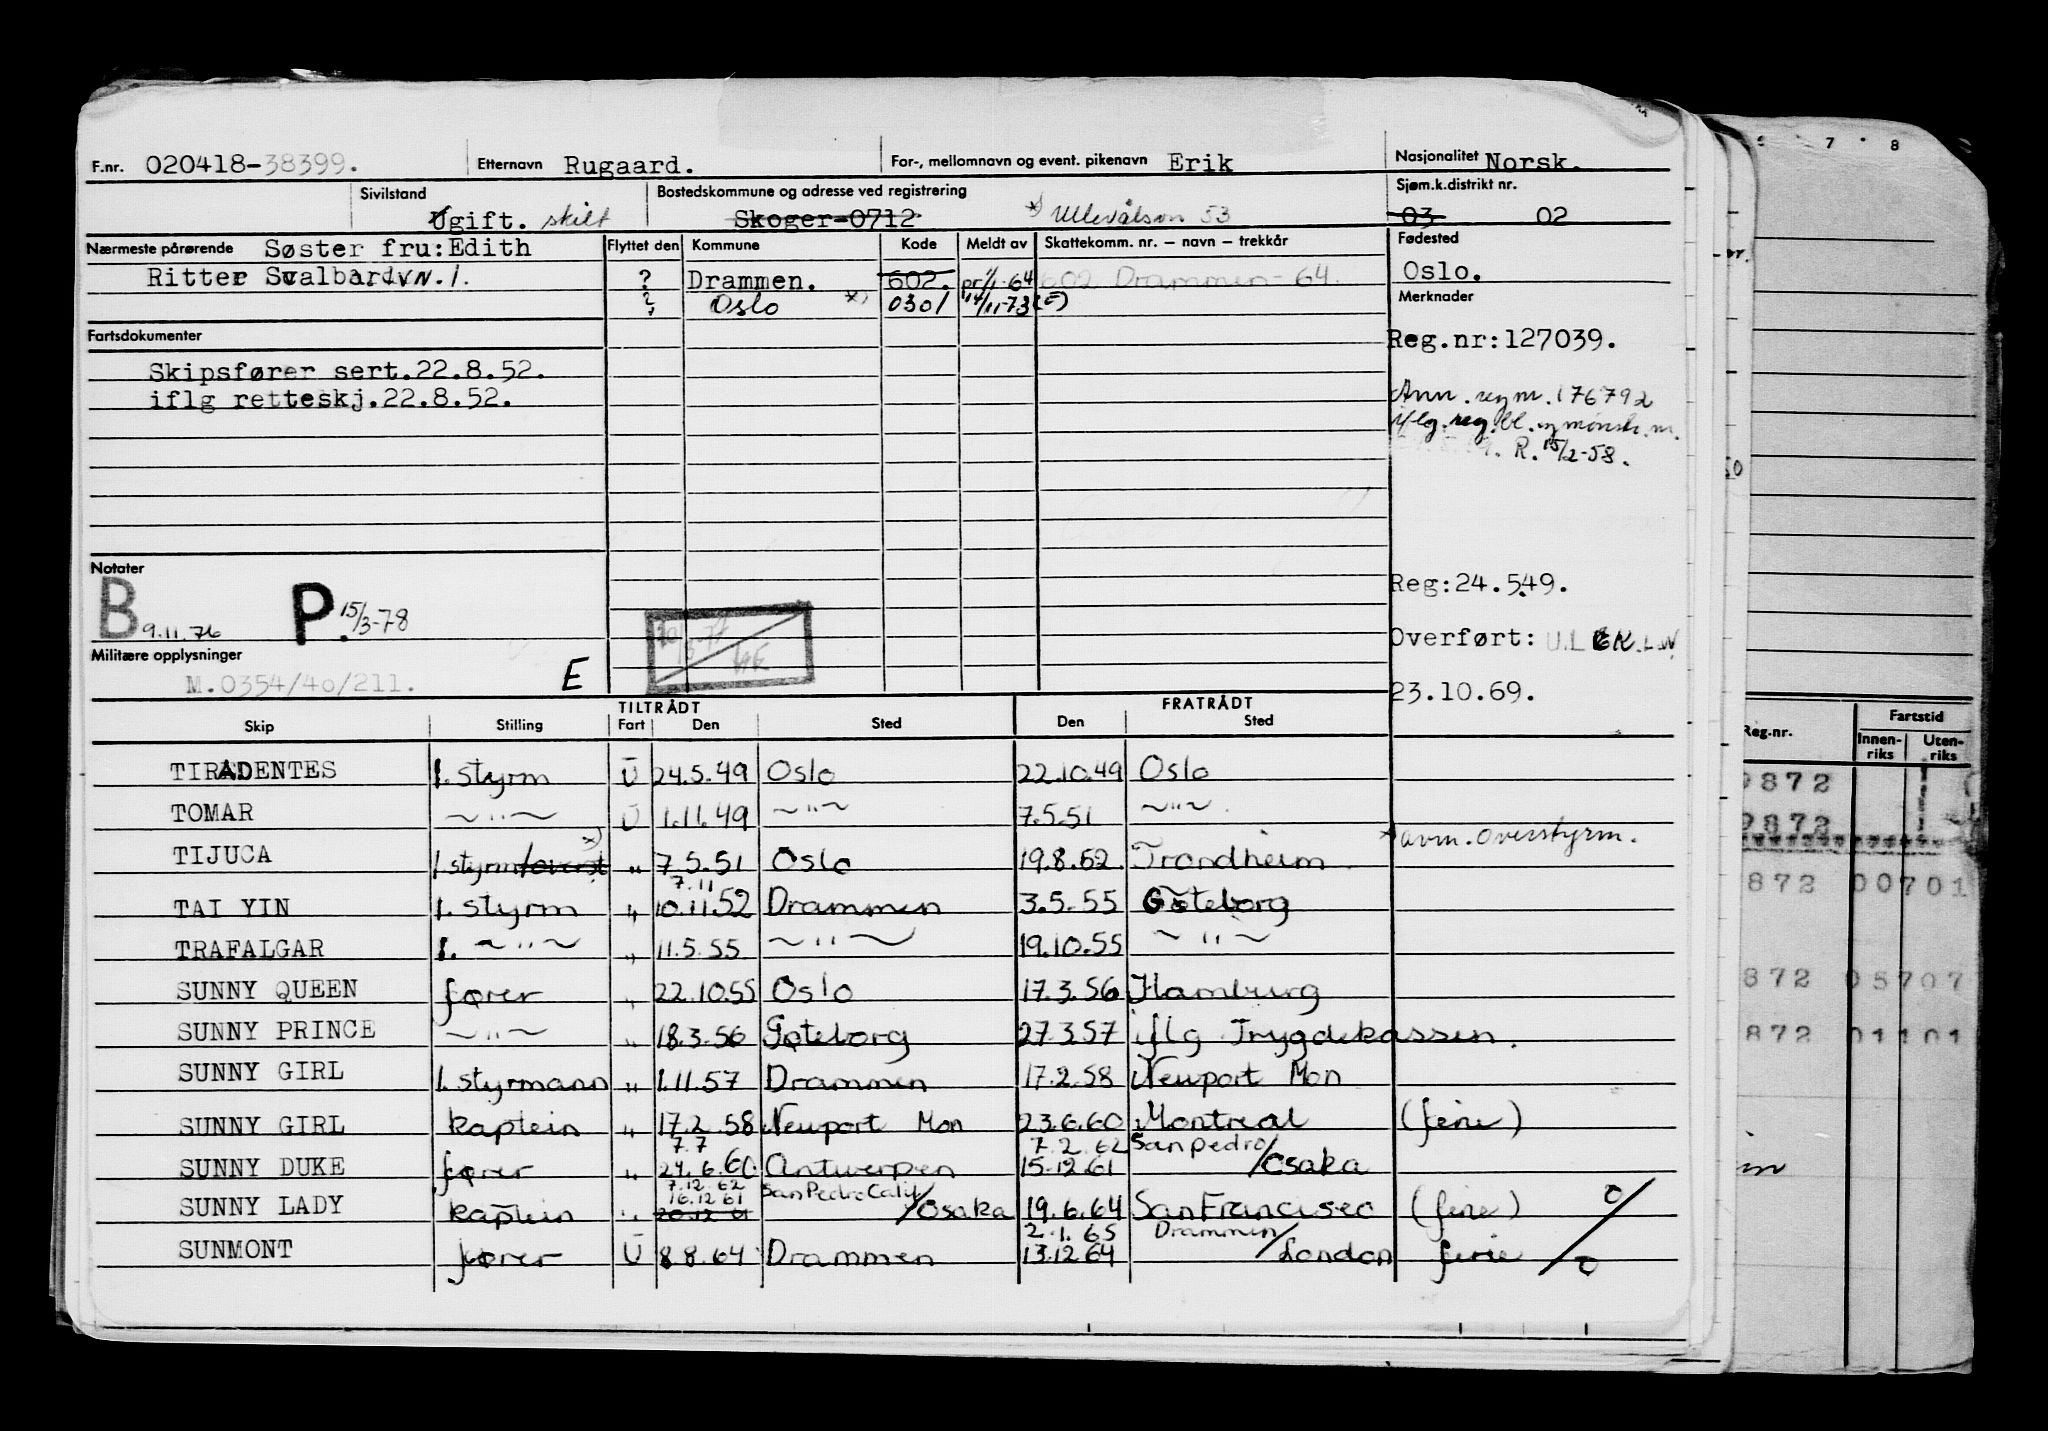 F.nr. 020418-38399. Etternavn Rugaard. For-, mellomnavn og event. pikenavn Erik Nasjonalitet Norsk.
Sivilstand Ugift. skilt Bostedskommune og adresse ved registrering Skoger-0712 *) Ullevålsvn 53 Sjøm.k.distrikt nr. 03 02
Nærmeste pårørende Søster fru:Edith
Ritter Svalbardvn. 1.
Flyttet den Kommune Kode Meldt av Skattekomm. nr. – navn – trekkår
? Drammen. 602. pr 1/1-64 602 Drammen-64.
? Oslo *) 0301 14/11-73 (E)
Fødested
Oslo.
Merknader
Reg.nr:127039.
Ann. regnr. 176792
iflg. reg. bl. og mønstr.
R. 15/2-58.
Reg:24.5.49.
Overført:
23.10.69.
Fartsdokumenter
Skipsfører sert.22.8.52.
iflg retteskj.22.8.52.
Notater
B 9.11.76 P. 15/3-78
Militære opplysninger
M.0354/40/211. E
TILTRÅDT FRATRÅDT
Skip Stilling Fart Den Sted Den Sted
TIRADENTES 1. styrm U 24.5.49 Oslo 22.10.49 Oslo
TOMAR ~"~ U 1.11.49 ~"~ 7.5.51 ~"~
*) avm. overstyrm.
TIJUCA 1 styrm/overst *) " 7.5.51 Oslo 19.8.52 Trondheim
7.11
TAI YIN 1. styrm " 10.11.52 Drammen 3.5.55 Gøteborg
TRAFALGAR 1. ~"~ " 11.5.55 ~"~ 19.10.55 ~"~
SUNNY QUEEN fører " 22.10.55 Oslo 17.3.56 Hamburg
SUNNY PRINCE ~"~ " 18.3.56 Gøteborg 27.3.57 iflg Trygdekassen.
SUNNY GIRL 1. styrmann " 1.11.57 Drammen 17.2.58 Newport Mon
SUNNY GIRL kaptein " 17.2.58 Newport Mon 23.6.60 Montreal (ferie)
7.7 7.2.62 San Pedro/
SUNNY DUKE fører " 24.6.60. Antwerpen 15.12.61 Osaka
7.12.62
16.12.61 San Pedro Calif/
SUNNY LADY kaptein " 20.12.61 Osaka 19.6.64 San Francisco (ferie)
2.1.65 Drammen/
SUNMONT fører U 8.8.64 Drammen 13.12.64 London ferie
7 8
Reg.nr. Fartstid
Innen-riks Uten-riks
9872
9872
872 00701
872 05707
872 01101